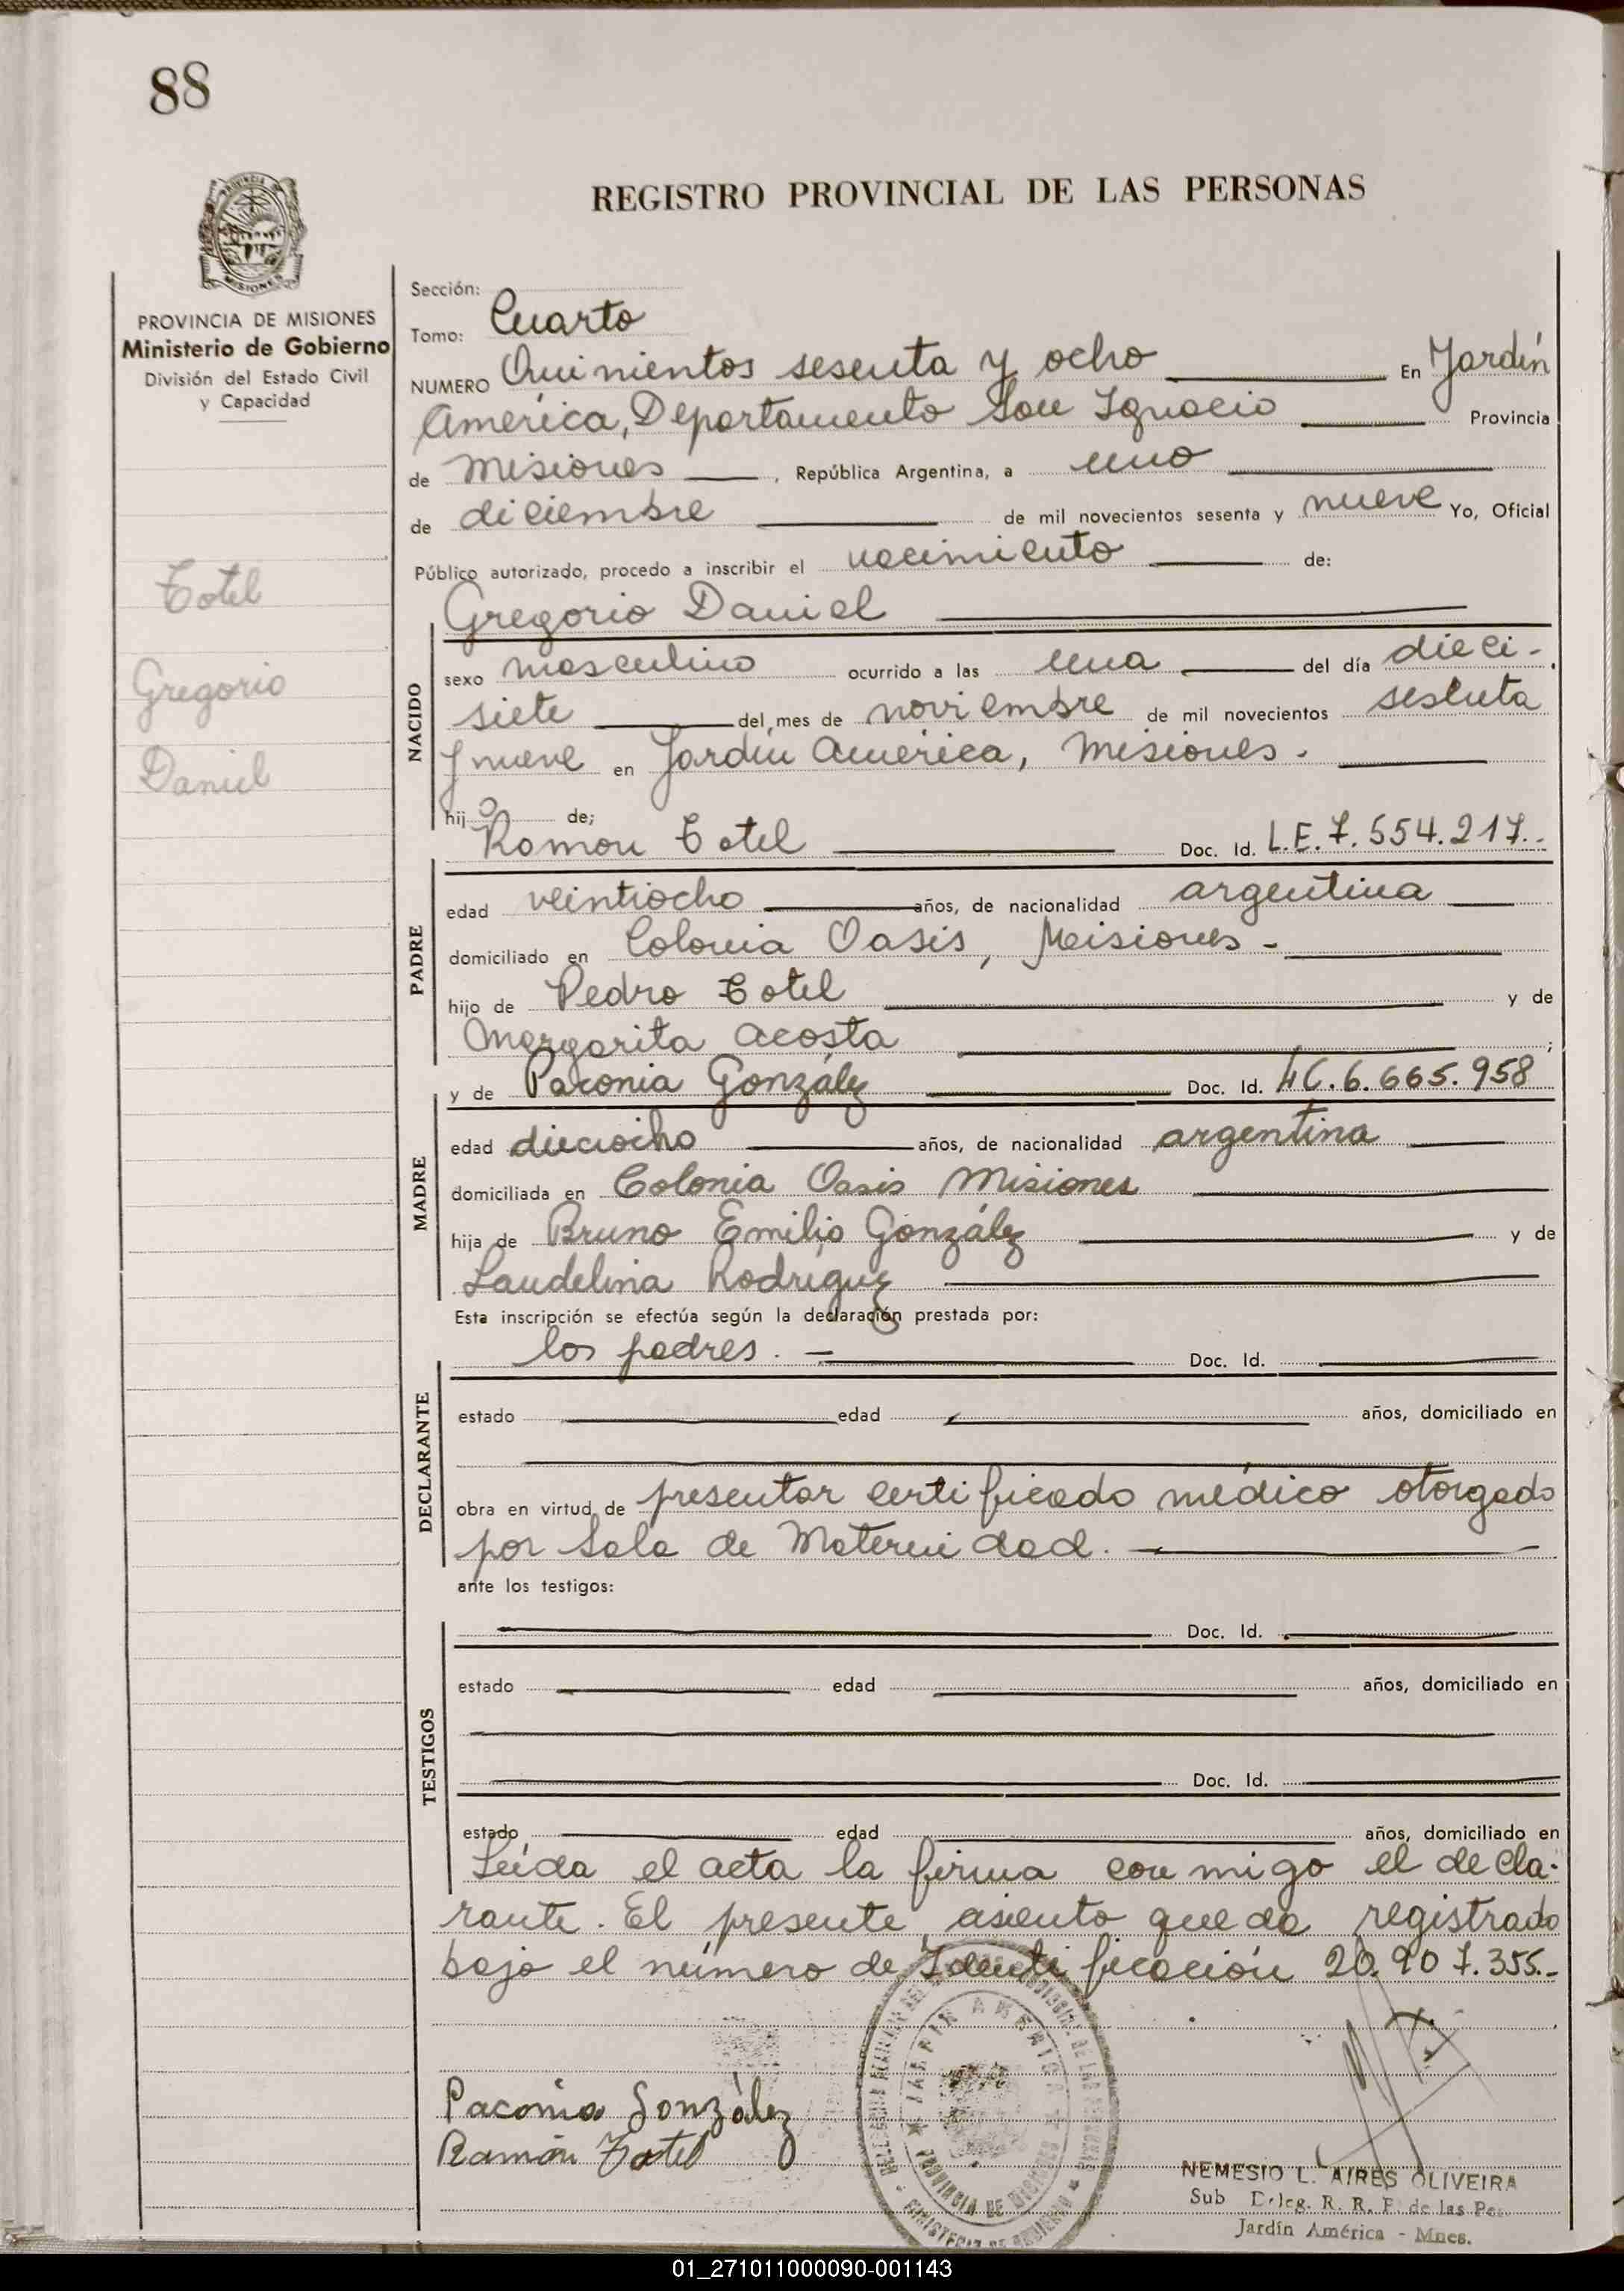 88
REGISTRO PROVINCIAL DE LAS PERSONAS
PROVINCIA DE MISIONES
Ministerio de Gobierno
División del Estado Civil
y Capacidad
Totel
Gregorio
Daniel
Sección:
Tomo: Cuarto
NUMERO Quinientos sesenta y ocho En Jardín
América, Departamento San Ignacio Provincia
de Misiones, República Argentina, a uno
de diciembre de mil novecientos sesenta y nueve Yo, Oficial
Público autorizado, procedo a inscribir el nacimiento de:
Gregorio Daniel
NACIDO
sexo masculino ocurrido a las una del día dieci-
siete del mes de noviembre de mil novecientos sesenta
y nueve en Jardín América, Misiones.
hijo de;
Ramon Totel Doc. Id. L.E. 7.554.217.-
PADRE
edad veintiocho años, de nacionalidad argentina
domiciliado en Colonia Oasis, Misiones -
hijo de Pedro Totel y de
Margarita Acosta ;
y de Paconia González Doc. Id. 6.665.958
MADRE
edad dieciocho años, de nacionalidad argentina
domiciliada en Colonia Oasis Misiones
hija de Bruno Emilio González y de
Laudelina Rodríguez
Esta inscripción se efectúa según la declaración prestada por:
los padres. - Doc. Id.
DECLARANTE
estado edad años, domiciliado en
obra en virtud de presentar certificado médico otorgado
por Sala de Maternidad.
ante los testigos:
TESTIGOS
Doc. Id.
estado edad años, domiciliado en
Doc. Id.
estado edad años, domiciliado en
Leída el acta la firma conmigo el decla-
rante. El presente asiento queda registrado
bajo el número de Identificación 20.907.355.-
Paconia González
Ramón Totel
JARDIN AMERICA
PROVINCIA DE MISIONES
MINISTERIO DE GOBIERNO
NEMESIO L. AIRES OLIVEIRA
Sub Deleg. R. R. P. de las Pe
Jardín América - Mnes.
01_271011000090-001143